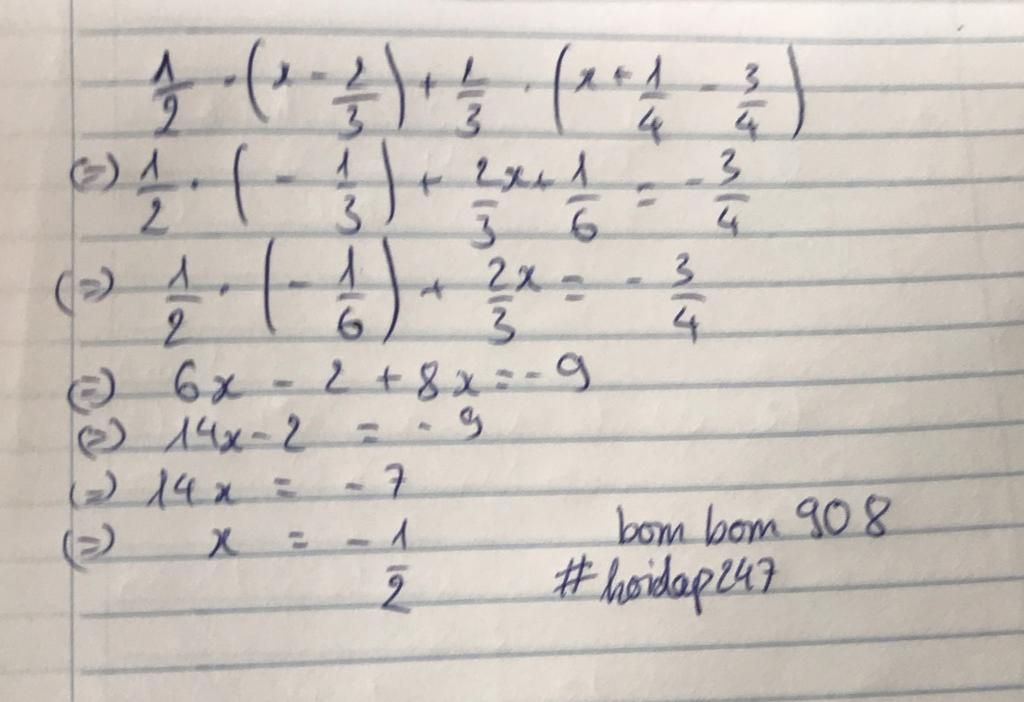 1/2 . (x - 2/3) + 1/3 . (x + 1/4 - 3/4)
(=) 1/2 . ( - 1/3) + 2x/3 + 1/6 = - 3/4
(=) 1/2 . (- 1/6) + 2x/3 = - 3/4
(=) 6x - 2 + 8x = - 9
(=) 14x - 2 = - 9
(=) 14x = - 7
(=) x = - 1/2
bom bom 908
#hoidap247